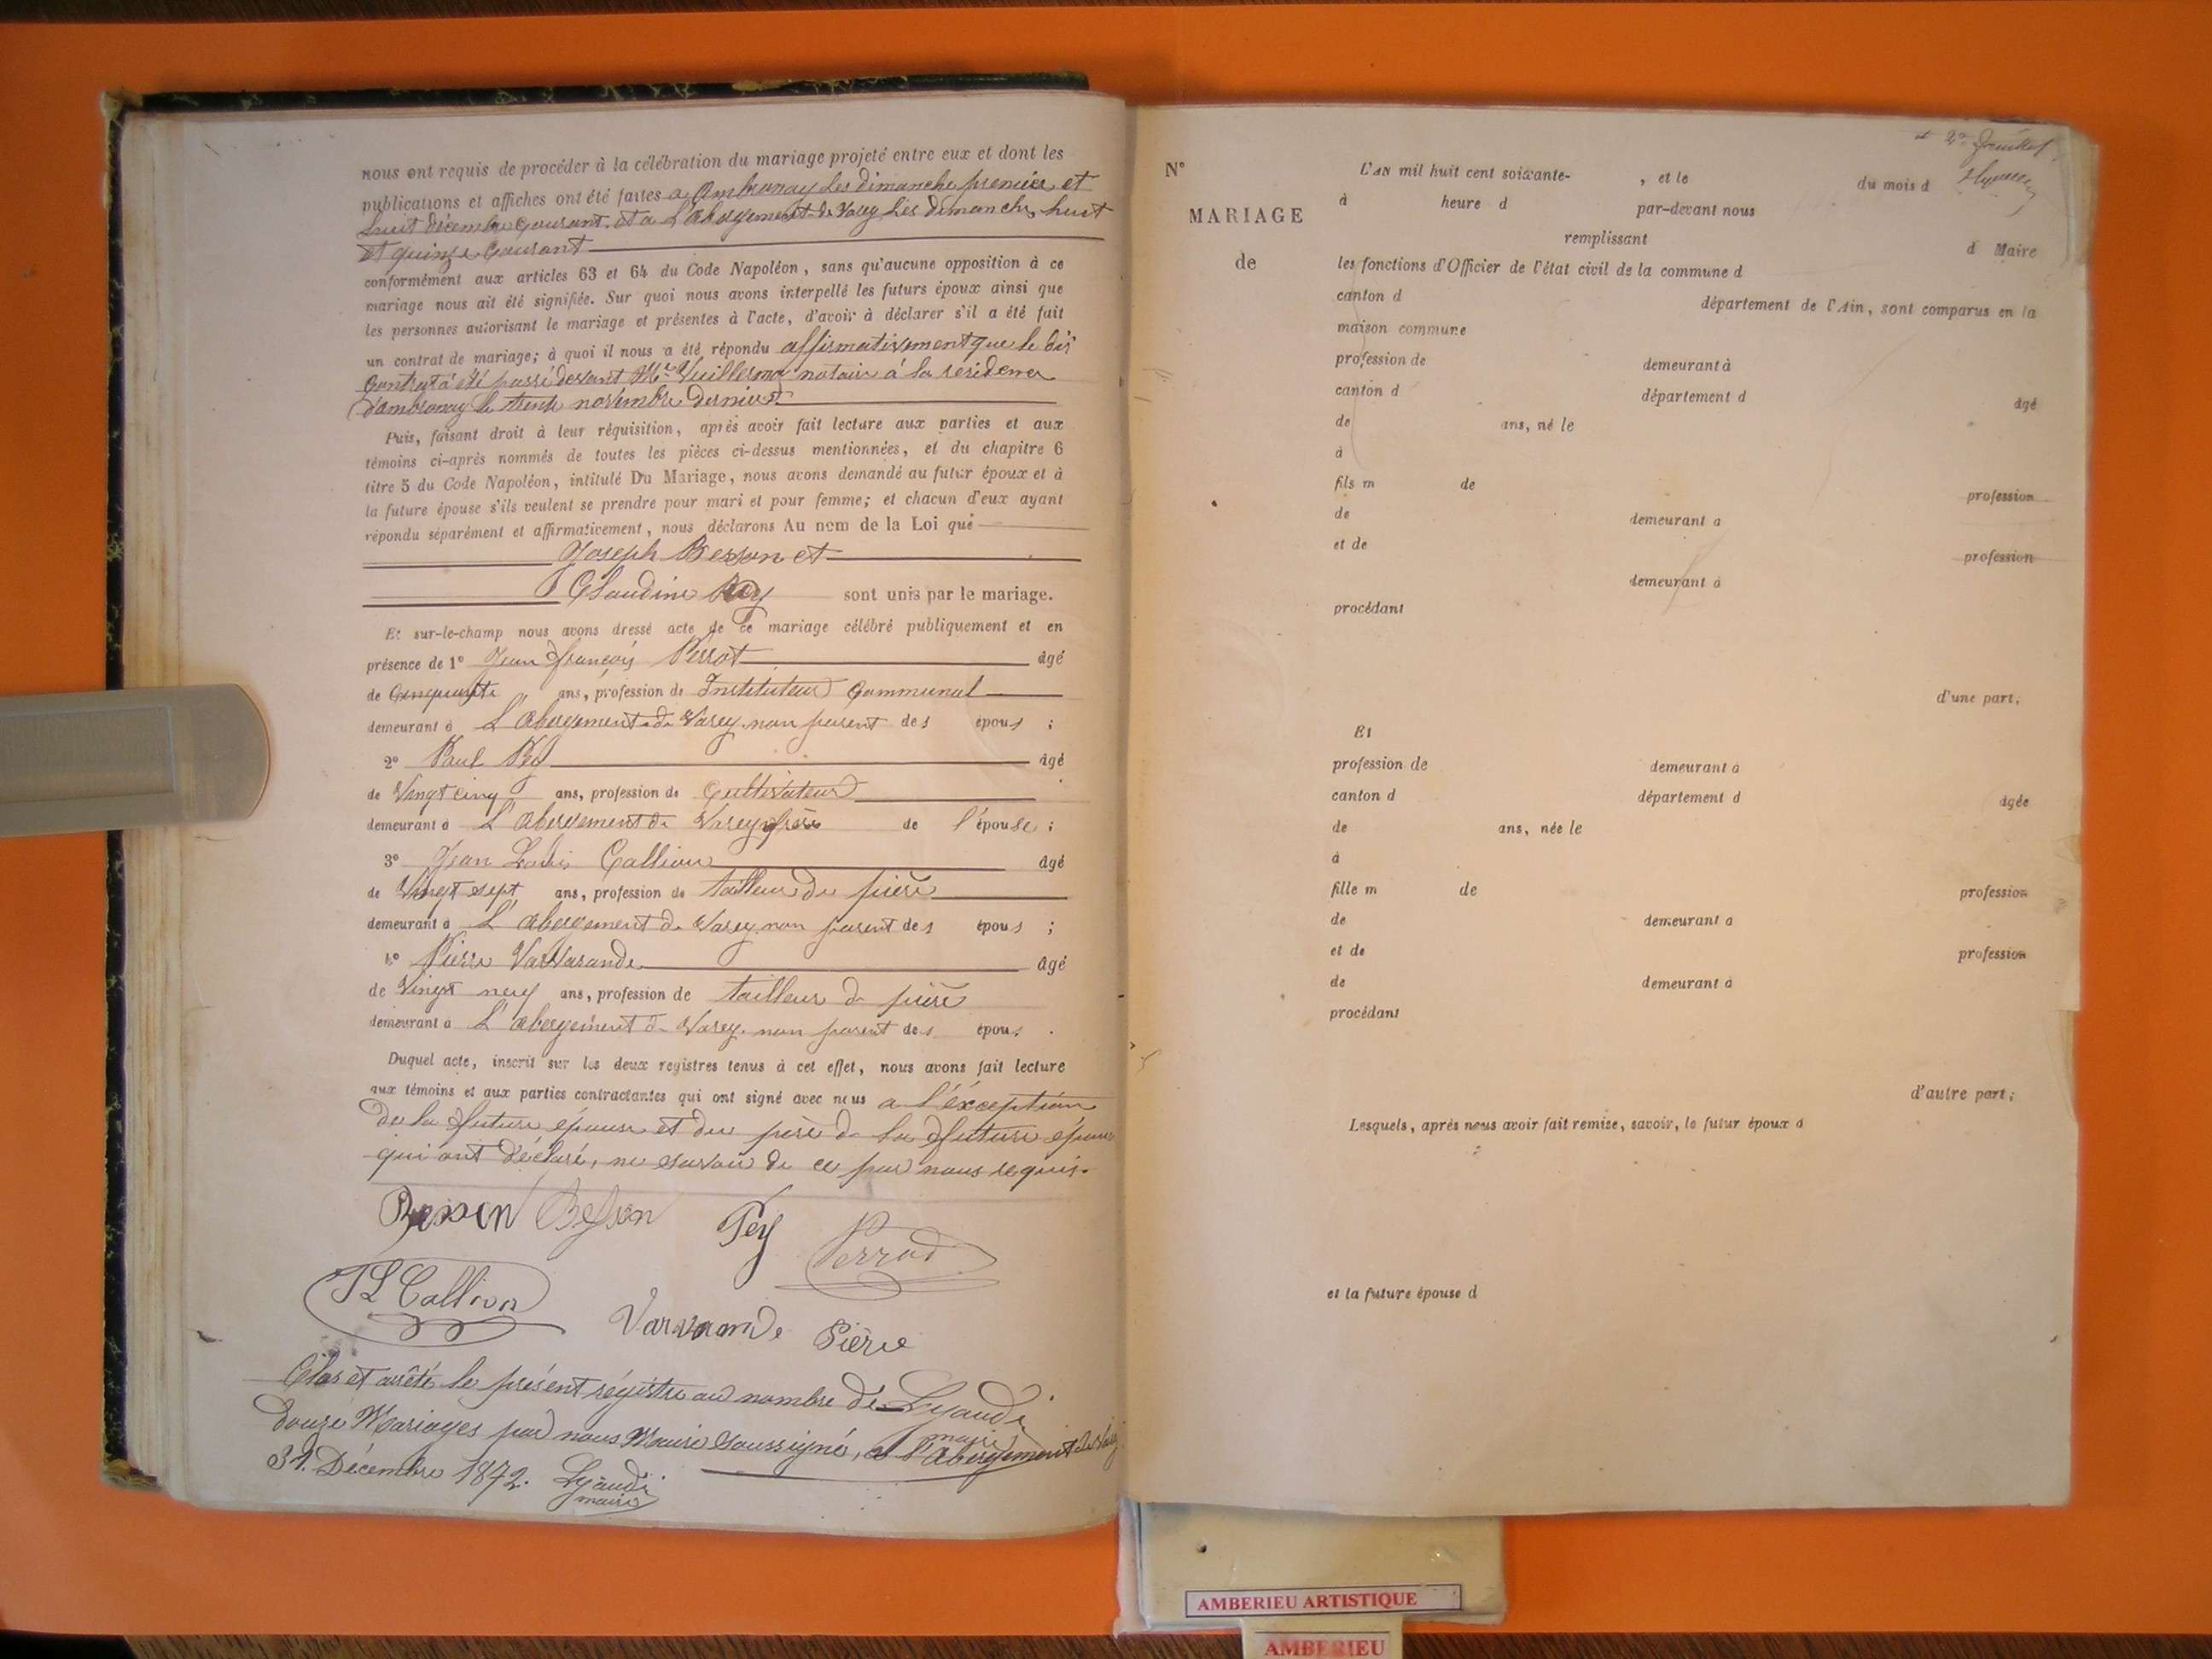 nous ont requis de procéder à la célébration du mariage projeté entre eux et dont les
publications et affiches ont été faites a Ambronay les dimanche premier et
huit décembre courant. et a L'abergement de Varey les dimanches huit
et quinze Courant
conformément aux articles 63 et 64 du Code Napoléon, sans qu'aucune opposition à ce
mariage nous ait été signifiée. Sur quoi nous avons interpellé les futurs époux ainsi que
les personnes autorisant le mariage et présentes à l'acte, d'avoir à déclarer s'il a été fait
un contrat de mariage; à quoi il nous a été répondu affirmativement que le dit
Contrat a été passé devant Me Vuillermoz notaire à la résidence
d'ambronay le trente novembre dernier.
Puis, faisant droit à leur réquisition, après avoir fait lecture aux parties et aux
témoins ci-après nommés de toutes les pièces ci-dessus mentionnées, et du chapitre 6
titre 5 du Code Napoléon, intitulé Du Mariage, nous avons demandé au futur époux et à
la future épouse s'ils veulent se prendre pour mari et pour femme; et chacun d'eux ayant
répondu séparément et affirmativement, nous déclarons Au nom de la Loi que
Joseph Besson et
Claudine sont unis par le mariage.
Et sur-le-champ nous avons dressé acte de ce mariage célébré publiquement et en
présence de 1° Jean François Perrot âgé
de Cinquante ans, profession de Instituteur Communal
demeurant à L'abergement de Varey non parent des épous ;
2° Paul âgé
de Vingt cinq ans, profession de Cultivateur
demeurant à L'abergement de Varey frère de l'épouse ;
3° Jean Louis Callion âgé
de Vingt sept ans, profession de tailleur de pière
demeurant à L'abergement de Varey non parent des épous ;
4° Pierre Varvarande âgé
de Vingt neuf ans, profession de tailleur de pière
demeurant à L'abergement de Varey non parent des épous .
Duquel acte, inscrit sur les deux registres tenus à cet effet, nous avons fait lecture
aux témoins et aux parties contractantes qui ont signé avec nous a l'éxception
de la future épouse et du père de la future épouse
qui ont déclaré, ne savoir de ce par nous requis.
Besson Besson Pey Perrod
JL Callion
Varvarande Pière
Clos et arrêté le présent régistre au nombre de Lyaudi
douze Mariages par nous Maire soussigné, a l'Abergement de Varey maire
31. Décembre 1872. Lyaudi
maire
2e feuillet
N°
MARIAGE
de
L'AN mil huit cent soixante- , et le du mois d
à heure d par-devant nous
remplissant d Maire
les fonctions d'Officier de l'état civil de la commune d
canton d département de l'Ain, sont comparus en la
maison commune
profession de demeurant à
canton d département d âgé
de ans, né le
à
fils m de profession
de demeurant a
et de profession
demeurant à
procédant
d'une part;
Et
profession de demeurant a
canton d département d âgée
de ans, née le
à
fille m de profession
de demeurant a
et de profession
de demeurant à
procédant
d'autre part;
Lesquels, après nous avoir fait remise, savoir, le futur époux d
et la future épouse d
AMBERIEU ARTISTIQUE
AMBERIEU